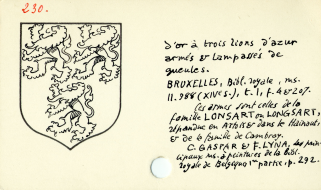 230.
d'or à trois lions d'azur
armés & lampassés de
gueules.
BRUXELLES, Bibl. royale, ms.
II.988 (XIVe s.), t. 1, f. 6 & 207.
Ces armes sont celles de la
famille LONSART ou LONGSART,
répandue en Artois & dans le Hainaut,
& de la famille de Cambray.
C. GASPAR & F. LYNA, Les prin-
cipaux ms. à peintures de la Bibl.
royale de Belgique, 1re partie, p. 292.